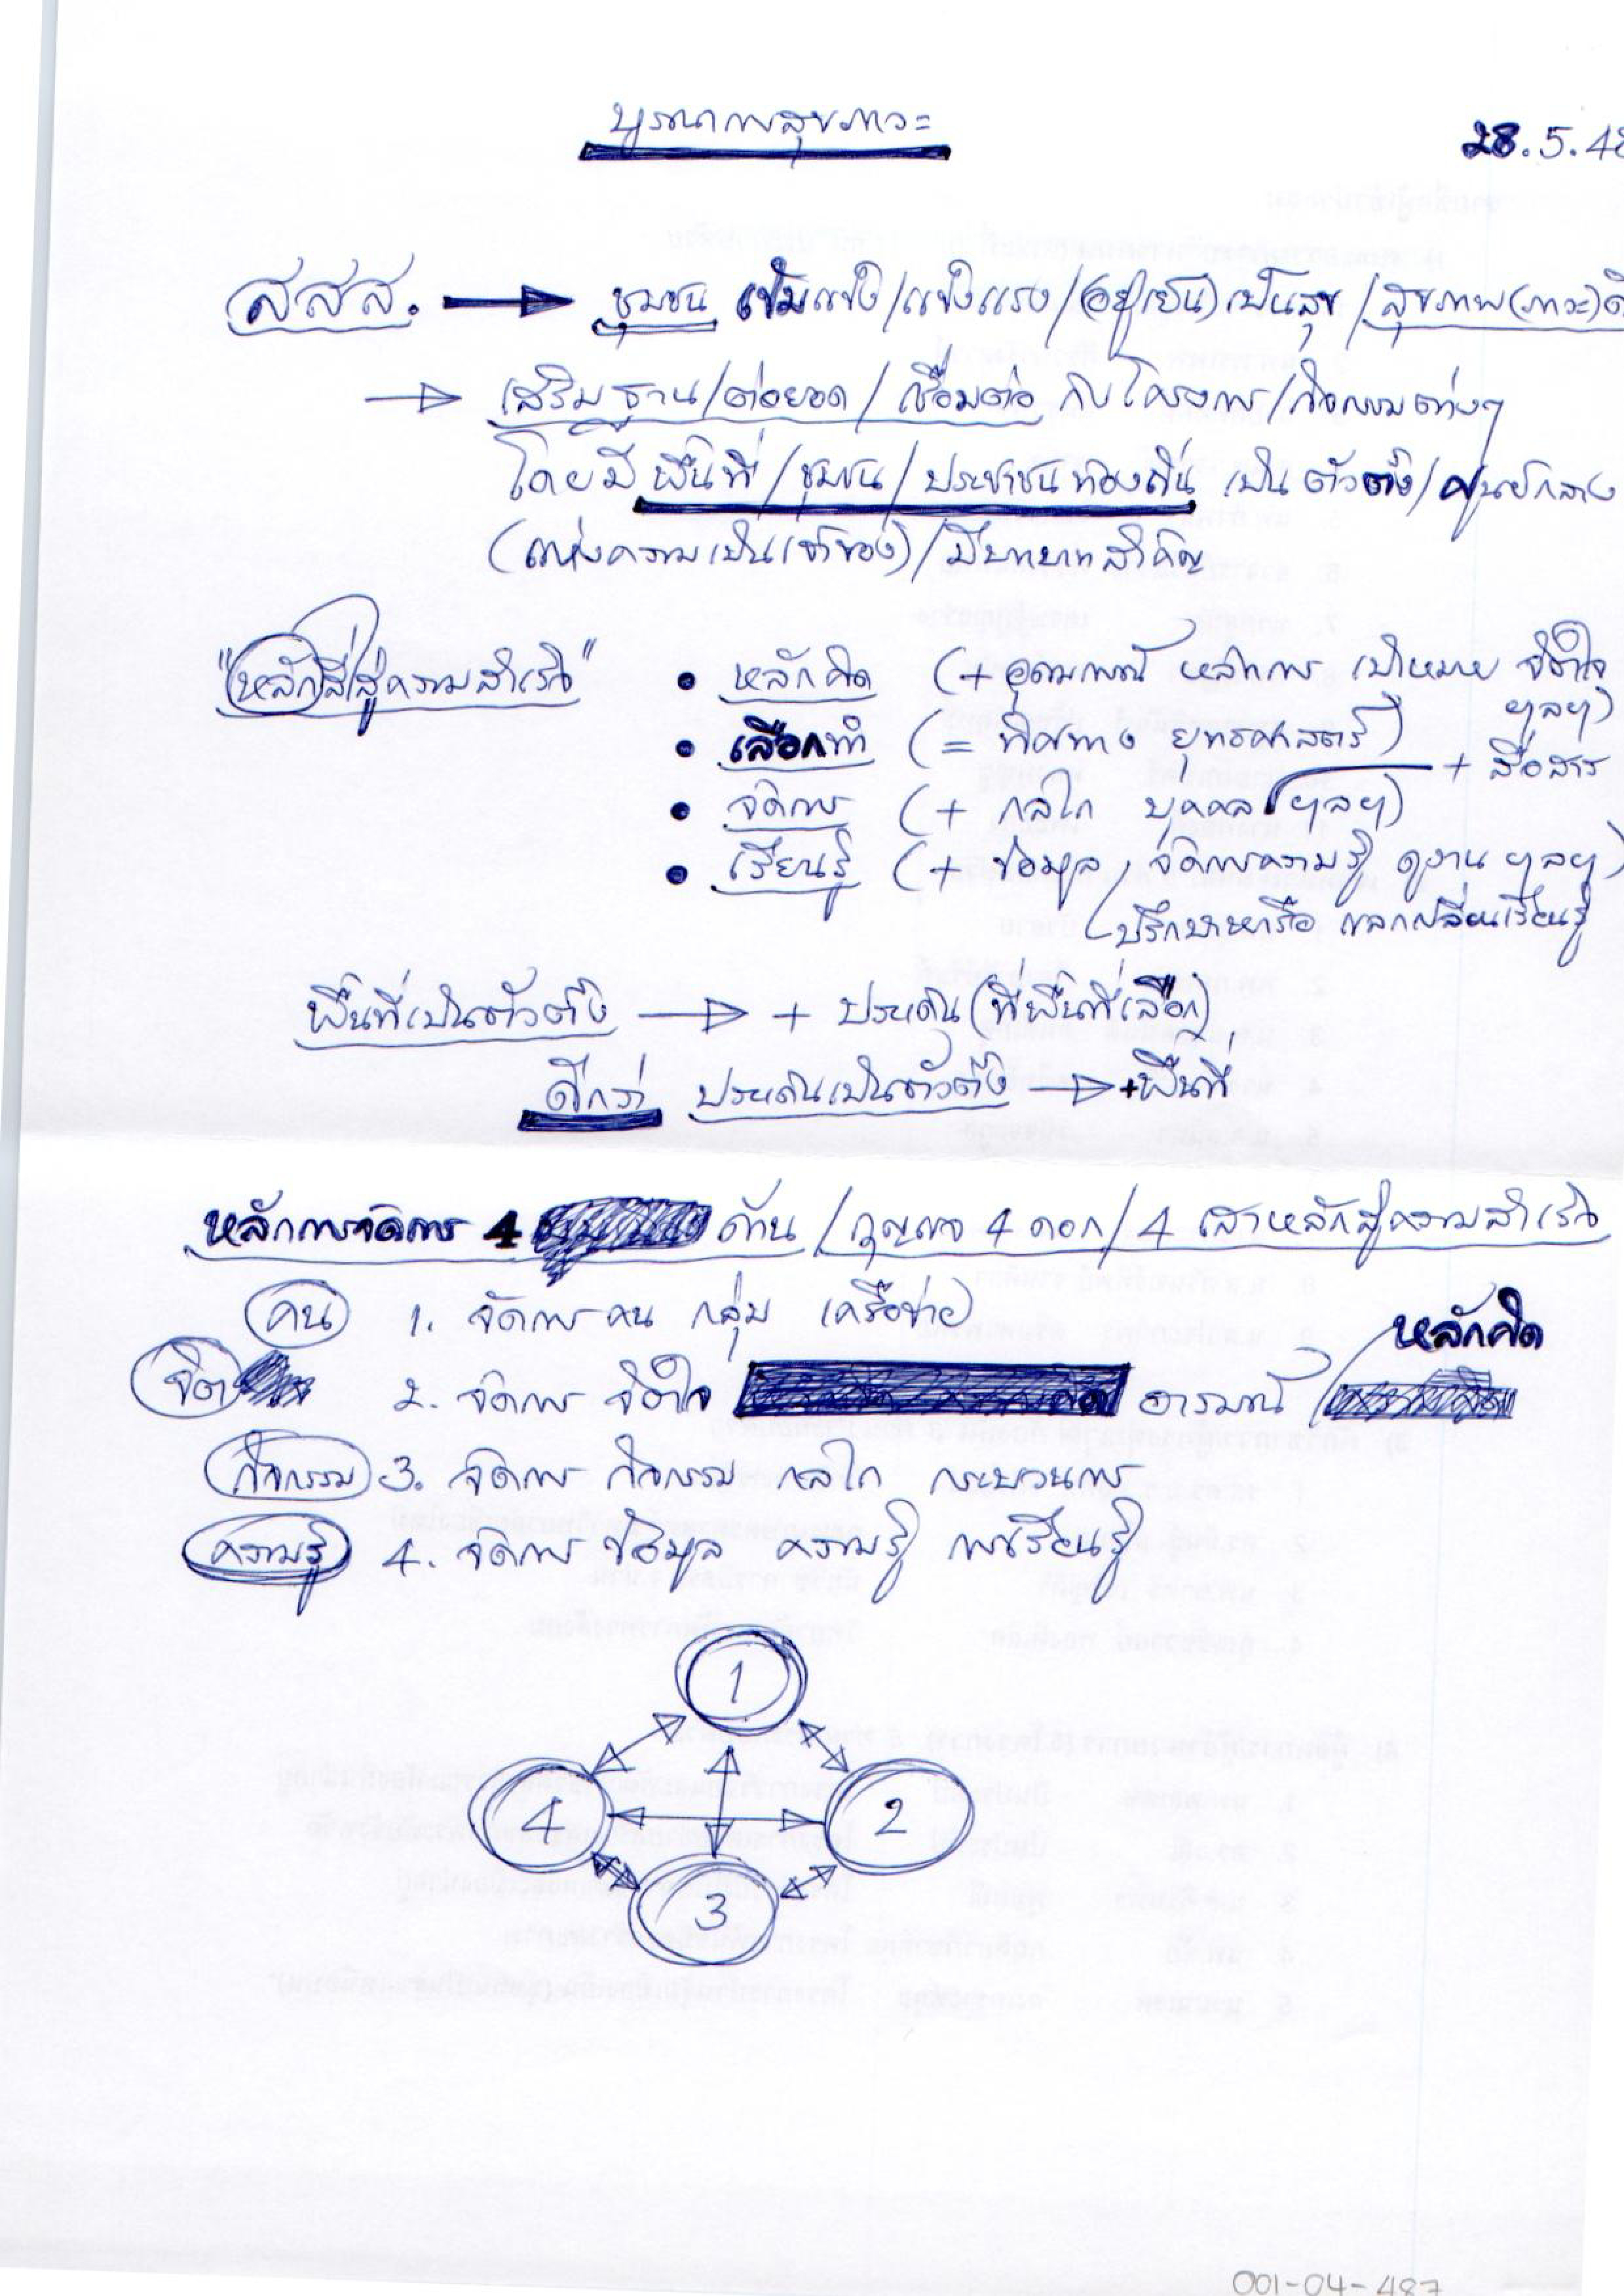 บูรณาการสุขภาวะ
28.5.48
สสส. → ชุมชน เข้มแข็ง/แข็งแรง/(อยู่เย็น)เป็นสุข/สุขภาพ(ภาวะ)ดี
→ เสริมฐาน/ต่อยอด/เชื่อมต่อ กับโครงการ/กิจกรรมต่างๆ
โดยมี พื้นที่/ชุมชน/ประชาชนท้องถิ่น เป็นตัวตั้ง/ศูนย์กลาง
(แห่งความเป็นเจ้าของ)/มีบทบาทสำคัญ
"หลักสี่สู่ความสำเร็จ" • หลักคิด (+ อุดมการณ์ หลักการ เป้าหมาย จิตใจ
ฯลฯ)
• เลือกทำ (= ทิศทาง ยุทธศาสตร์)
+ สื่อสาร
• จัดการ (+ กลไก บุคคล ฯลฯ)
• เรียนรู้ (+ ข้อมูล, จัดการความรู้ ดูงาน ฯลฯ)
ปรึกษาหารือ แลกเปลี่ยนเรียนรู้
พื้นที่เป็นตัวตั้ง → + ประเด็น(ที่พื้นที่เลือก)
ดีกว่า ประเด็นเป็นตัวตั้ง → +พื้นที่
หลักการจัดการ 4 ด้าน/กุญแจ 4 ดอก/4 เสาหลักสู่ความสำเร็จ
คน 1. จัดการ คน กลุ่ม เครือข่าย
หลักคิด
จิต 2. จัดการ จิตใจ อารมณ์/
กิจกรรม 3. จัดการ กิจกรรม กลไก กระบวนการ
ความรู้ 4. จัดการ ข้อมูล ความรู้ การเรียนรู้
1
4 2
3
001-04-487